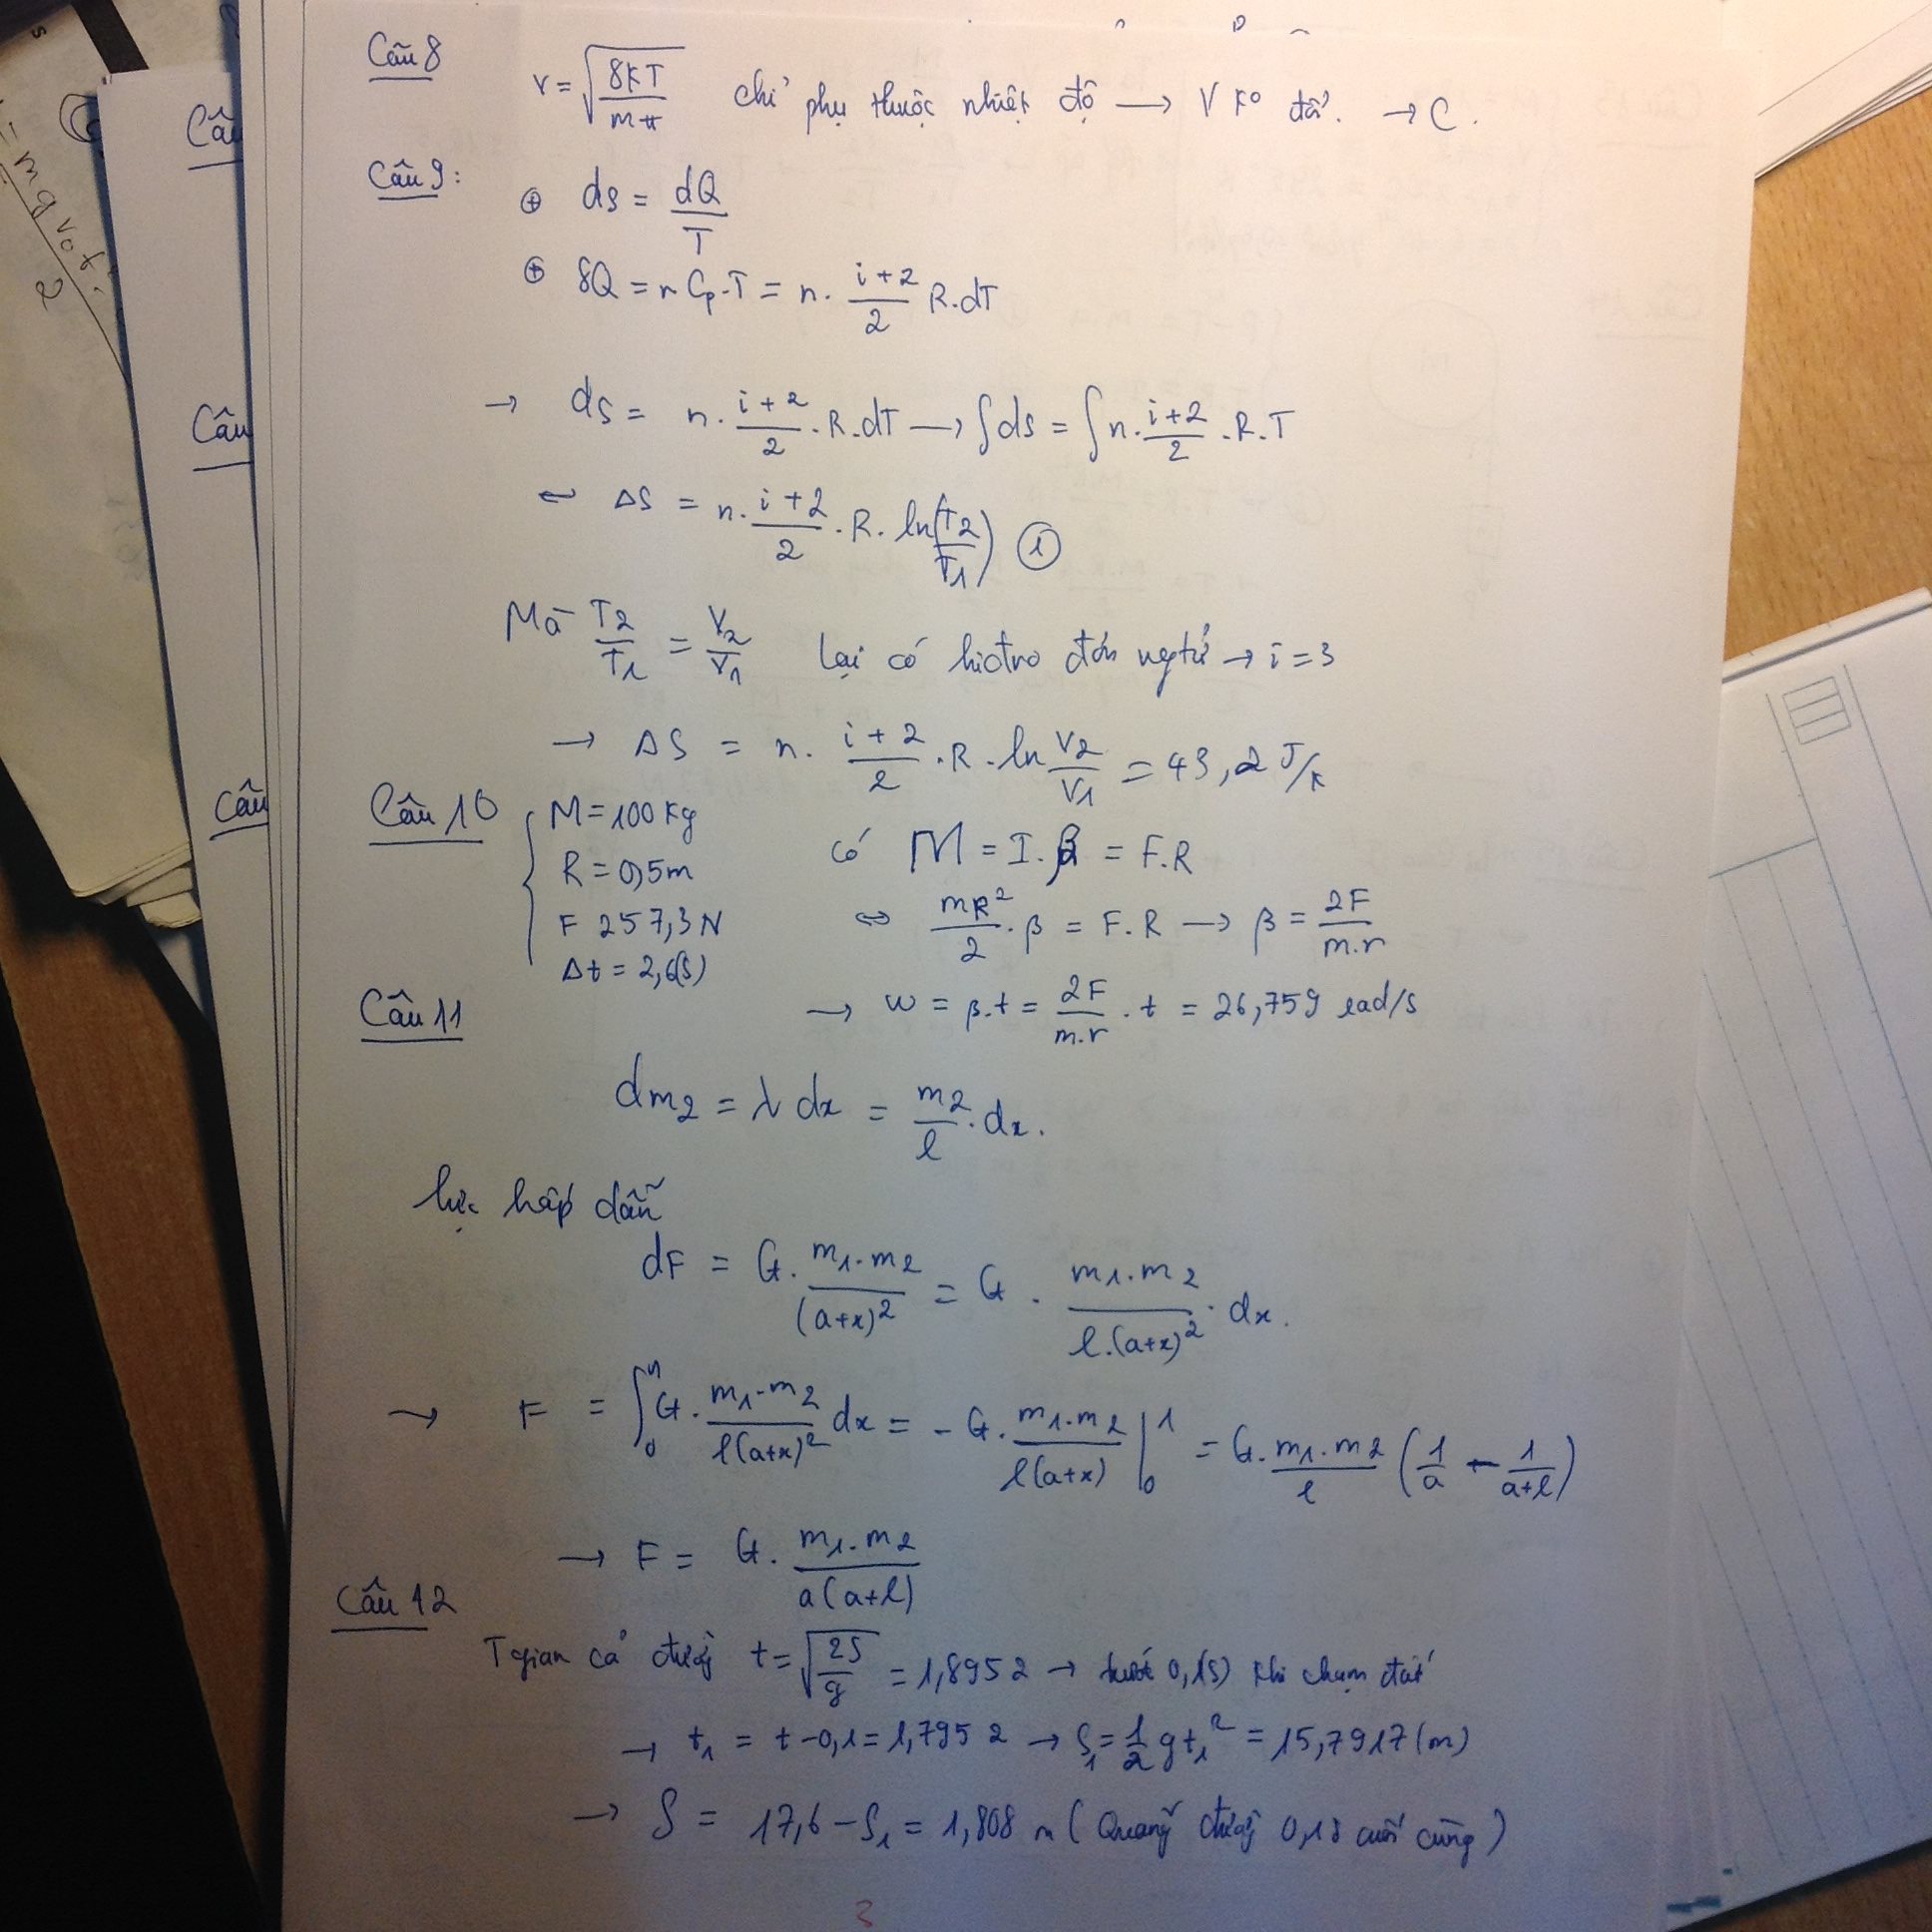 Câu 8
v = √(8kT/mπ) chỉ phụ thuộc nhiệt độ → V ko đổi. → C.
Câu 9:
⊕ dS = dQ/T
⊕ δQ = n Cp.T = n. (i+2)/2 R.dT
→ dS = n. (i+2)/2 . R.dT → ∫dS = ∫n. (i+2)/2 .R.T
⇔ ΔS = n. (i+2)/2 . R. ln(T2/T1) (1)
Mà T2/T1 = V2/V1 lại có hiđro đơn ngtử → i = 3
→ ΔS = n. (i+2)/2 .R. ln V2/V1 = 43,2 J/K
Câu 10
M = 100 kg
R = 0,5m
F 257,3 N
Δt = 2,6(s)
có M = I.β = F.R
⇔ mR²/2 . β = F.R → β = 2F/m.r
→ w = β.t = 2F/m.r . t = 26,759 rad/s
Câu 11
dm2 = λ dx = m2/l . dx.
lực hấp dẫn
dF = G. m1.m2/(a+x)² = G . m1.m2/l.(a+x)² . dx.
→ F = ∫ G. m1.m2/l(a+x)² dx = - G. m1.m2/l(a+x) |₀¹ = G. m1.m2/l (1/a - 1/a+l)
→ F = G. m1.m2/a(a+l)
Câu 12
Tgian cả đường t = √(2S/g) = 1,8952 → trước 0,1(s) khi chạm đất
→ t1 = t - 0,1 = 1,7952 → S1 = 1/2 g t1² = 15,7917 (m)
→ S = 17,6 - S1 = 1,808 m ( Quãng đường 0,1s cuối cùng )
3
Câu
Câu
Câu
mg v0 t
2